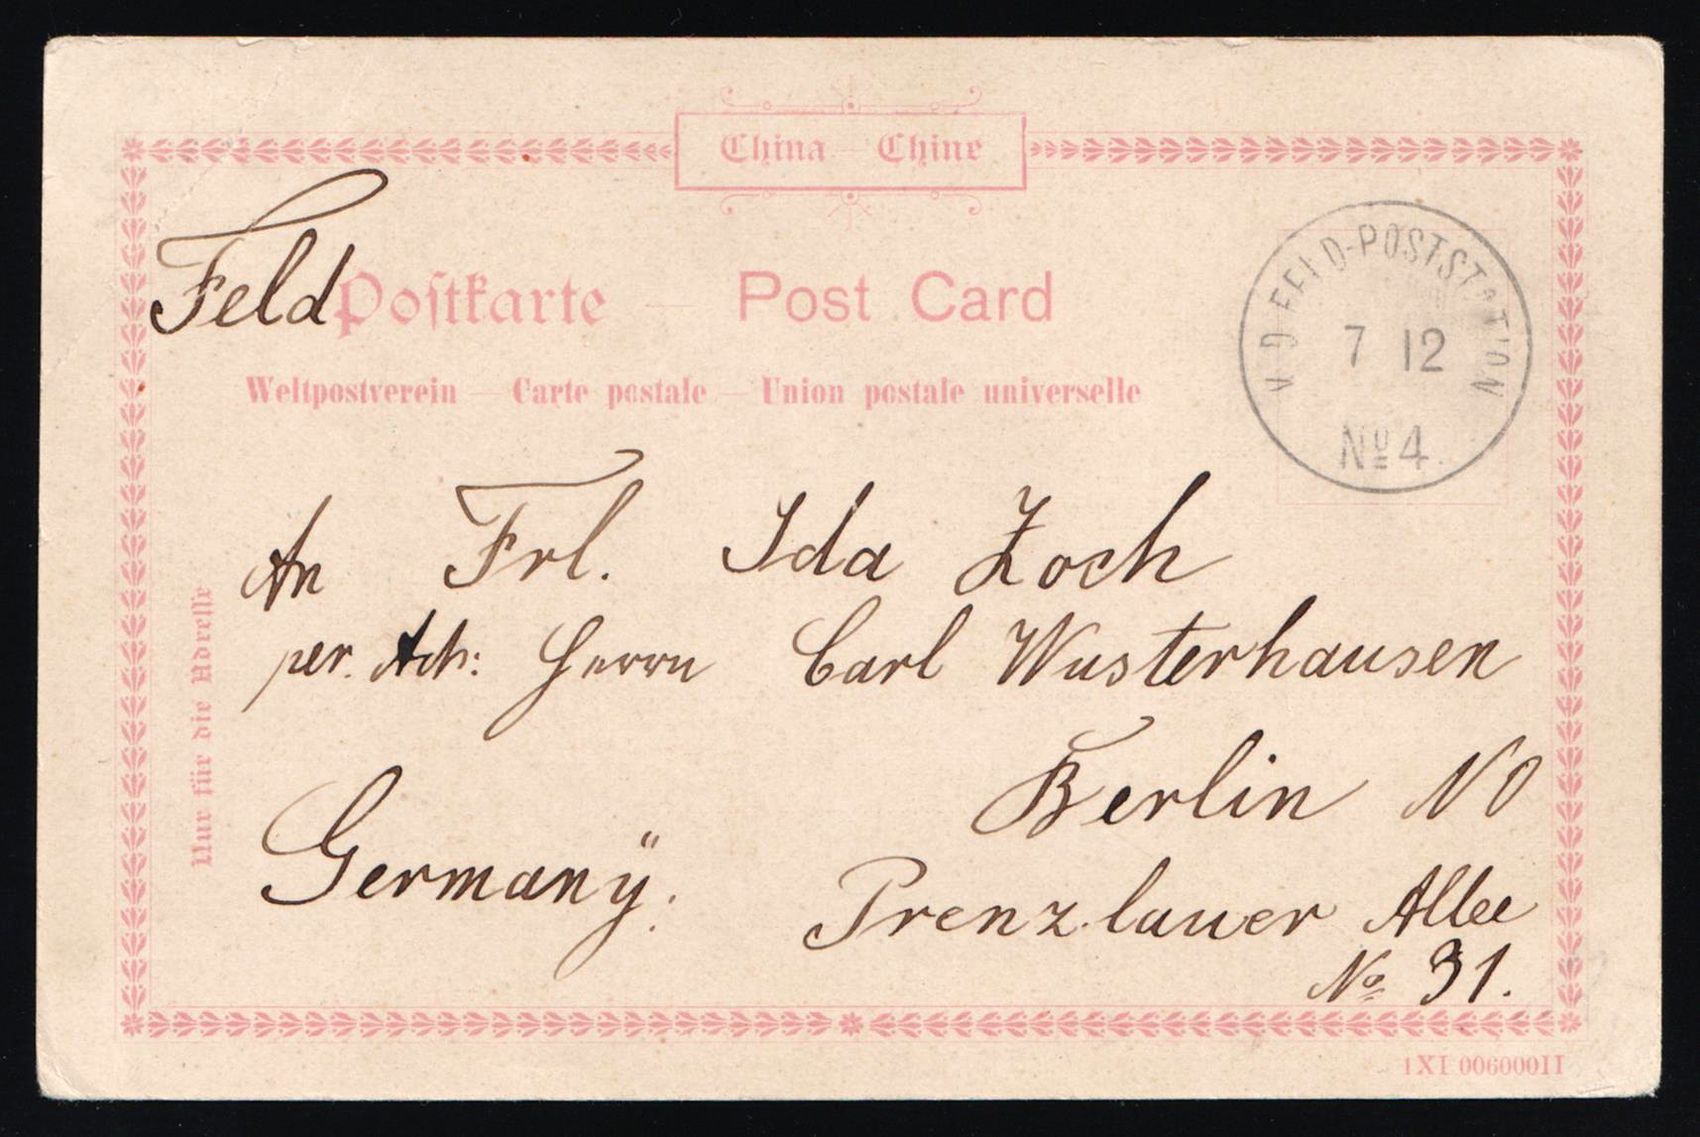 China Chine
FeldPostkarte — Post Card
Weltpostverein — Carte postale — Union postale universelle
K.D.FELD-POSTSTATION
7 12
No 4
An Frl. Ida Zoch
per. Adr: Herrn Carl Wusterhausen
Berlin NO
Germanÿ.
Prenzlauer Allee
No 31.
Nur für die Adresse
1XI 006000II